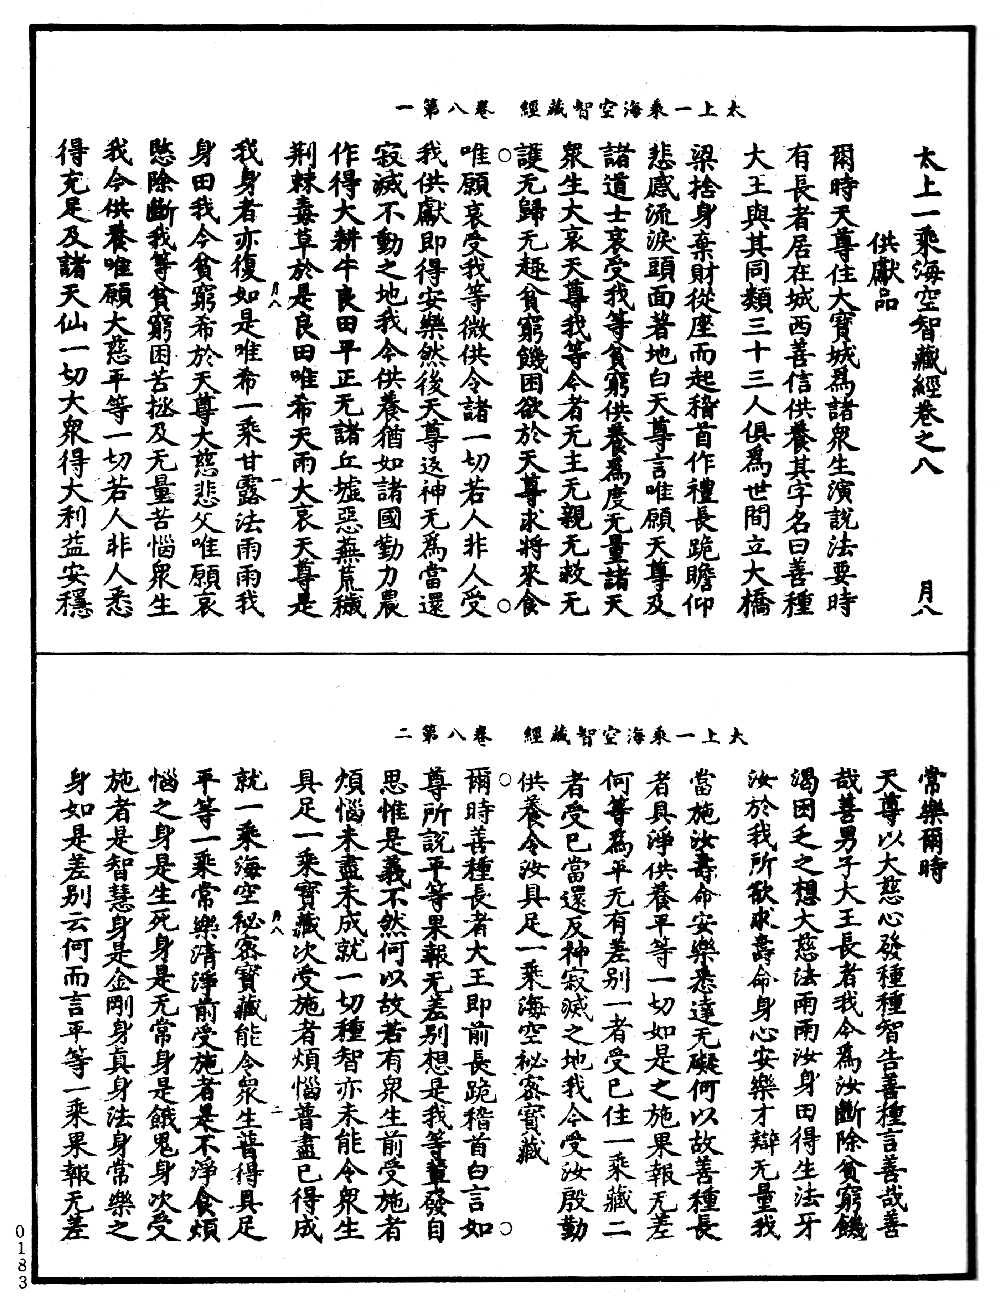 太上一乘海空智藏經　卷八第一
太上一乘海空智藏經卷之八　月八
供獻品
爾時天尊住大寶城爲諸衆生演說法要時
有長者居在城西善信供養其字名曰善種
大王與其同類三十三人俱爲世間立大橋
梁捨身棄財從座而起稽首作禮長跪瞻仰
悲感流淚頭面著地白天尊言唯願天尊及
諸道士哀受我等貧窮供養爲度无量諸天
衆生大哀天尊我等今者无主无親无救无
護无歸无趣貧窮饑困欲於天尊求將來食
唯願哀受我等微供令諸一切若人非人受
我供獻即得安樂然後天尊返神无爲當還
寂滅不動之地我今供養猶如諸國勤力農
作得大耕牛良田平正无諸丘墟惡蕪荒穢
荆棘毒草於是良田唯希天雨大哀天尊是
月八　一
我身者亦復如是唯希一乘甘露法雨雨我
身田我今貧窮希於天尊大慈悲父唯願哀
愍除斷我等貧窮困苦拯及无量苦惱衆生
我今供養唯願大慈平等一切若人非人悉
得充足及諸天仙一切大衆得大利益安穩
太上一乘海空智藏經　卷八第二
常樂爾時
天尊以大慈心發種種智告善種言善哉善
哉善男子大王長者我今爲汝斷除貧窮饑
渴困乏之想大慈法雨雨汝身田得生法牙
汝於我所欲求壽命身心安樂才辯无量我
當施汝壽命安樂悉達无礙何以故善種長
者具淨供養平等一切如是之施果報无差
何等爲平无有差別一者受已住一乘藏二
者受已當還反神寂滅之地我今受汝殷勤
供養令汝具足一乘海空祕密寶藏
爾時善種長者大王即前長跪稽首白言如
尊所說平等果報无差別想是我等輩發自
思惟是義不然何以故若有衆生前受施者
煩惱未盡未成就一切種智亦未能令衆生
具足一乘寶藏次受施者煩惱普盡已得成
月八　二
就一乘海空祕密寶藏能令衆生普得具足
平等一乘常樂清淨前受施者是不淨食煩
惱之身是生死身是无常身是餓鬼身次受
施者是智慧身是金剛身眞身法身常樂之
身如是差別云何而言平等一乘果報无差
0183